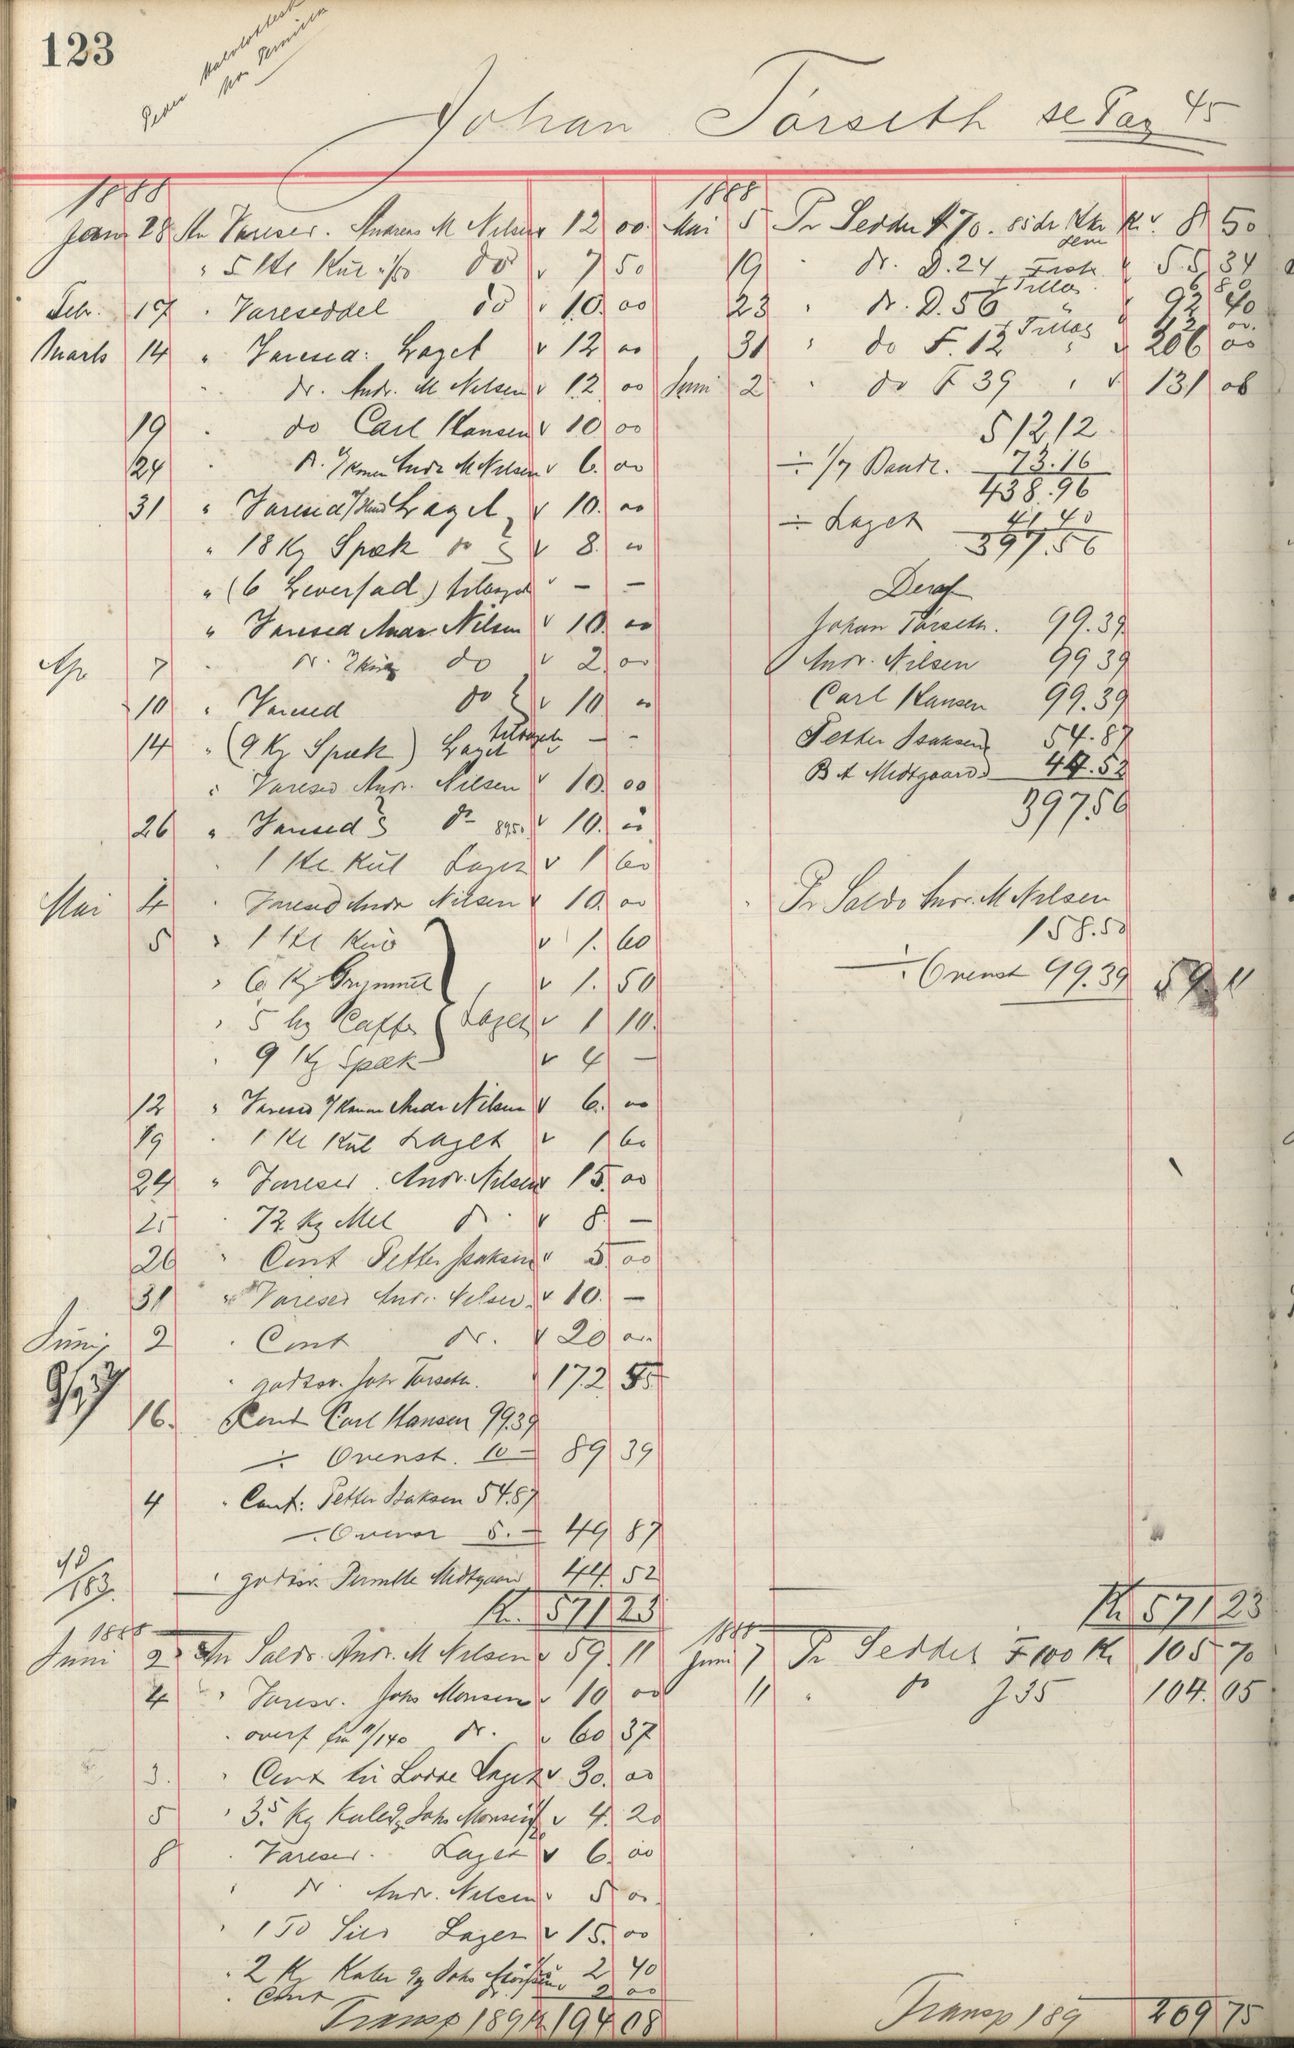 123
Peder
Johan Torseth se Pag 45
1888
Jan 28 An Varesed. Andreas M Nilsen v 12 00
" 5 Hl Kul 1/50 do v 7 50
Febr. 17 " Vareseddel do v 10 00
Marts 14 " Varesed: Laget v 12 00
" dr. Andr. M Nilsen v 12 00
19 " do Carl Hansen v 10 00
24 " dr. Andr M Nilsen v 6 00
31 " Varesed Laget v 10 00
" 18 Kg Spæk do v 8 00
" (6 Leverfad) v - -
" Varesed Andr Nilsen v 10 00
Apr 7 " dr. do v 2 00
10 " Varesed do v 10 00
14 " (9 Kg Spæk) Laget v - -
" Varesed Andr. Nilsen v 10 00
26 " Varesed do 89.50 v 10 00
" 1 Hl Kul Laget v 1 60
Mai 4 " Varesed Andr Nilsen v 10 00
5 " 1 Hl Kul v 1 60
" 6 Kg v 1 50
" 5 hg Caffe Laget v 1 10
" 9 Kg Spæk v 4 -
12 " Varesed Andr Nilsen v 6 00
19 " 1 Hl Kul Laget v 1 60
24 " Varesed Andr. Nilsen v 15 00
25 " 72 Kg Mel dr v 8 -
26 " Cont Petter Isaksen v 5 00
31 " Varesed Andr. Nilsen v 10 -
Juni 2 " Cont dr. v 20 00
" godskr. Joh Torseth 172 55
16. Cont Carl Hansen 99.39
÷ Ovenst. 10 - 89 39
4 " Cont: Petter Isaksen 54.87
÷ Ovenst 5. - 49 87
/183
" godskr. Pernille Midtgaard 44 52
Kr. 571 23
1888
Juni 2 An Saldo Andr. M Nilsen v 59 11
4 " Varesed. Johs Monsen v 10 00
" overf fra 11/140 dr. v 60 37
3. " Cont til Lodde Laget v 30 00
5 " 3.5 Kg Johs Monsen v 4 20
8 " Varesed. Laget v 6 00
" dr. Andr. Nilsen v 5 00
" 1 Td Sild Laget v 15 00
" 2 Kg Johs 2 40
" Cont dr. 2 00
Transp 189 Kr 194 08
1888
Mai 5 Pr Seddel A 70. Kr v 8 50
19 " dr. D. 24 v 55 34
6 80
23 " dr. D. 56 " v 92 40
12 00
31 " do F. 12 " v 206 00
Juni 2 " do F 39 " v 131 08
512,12
÷ 1/7 73.16
438.96
÷ Laget 41 40
397.56
Deraf
Johan Torseth. 99.39
Andr. Nilsen 99 39
Carl Hansen 99.39
Petter Isaksen 54.87
B A Midtgaard 44.52
397.56
Pr Saldo Andr. M Nilsen
158.50
÷ Ovenst 99.39 59 11
Kr 571 23
1888
Juni 7 Pr Seddel F 100 Kr 105 70
11 " do J 35 104 05
Transp 189 209 75